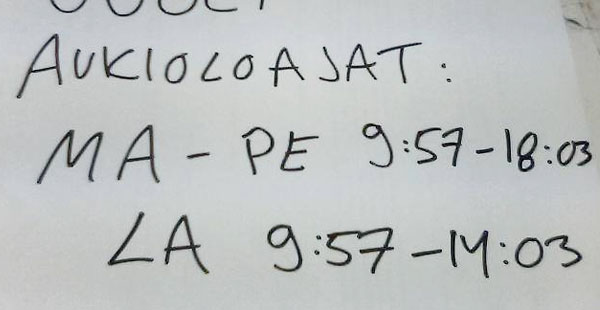 AUKIOLOAJAT:
MA - PE 9:57-18:03
LA 9:57-14:03